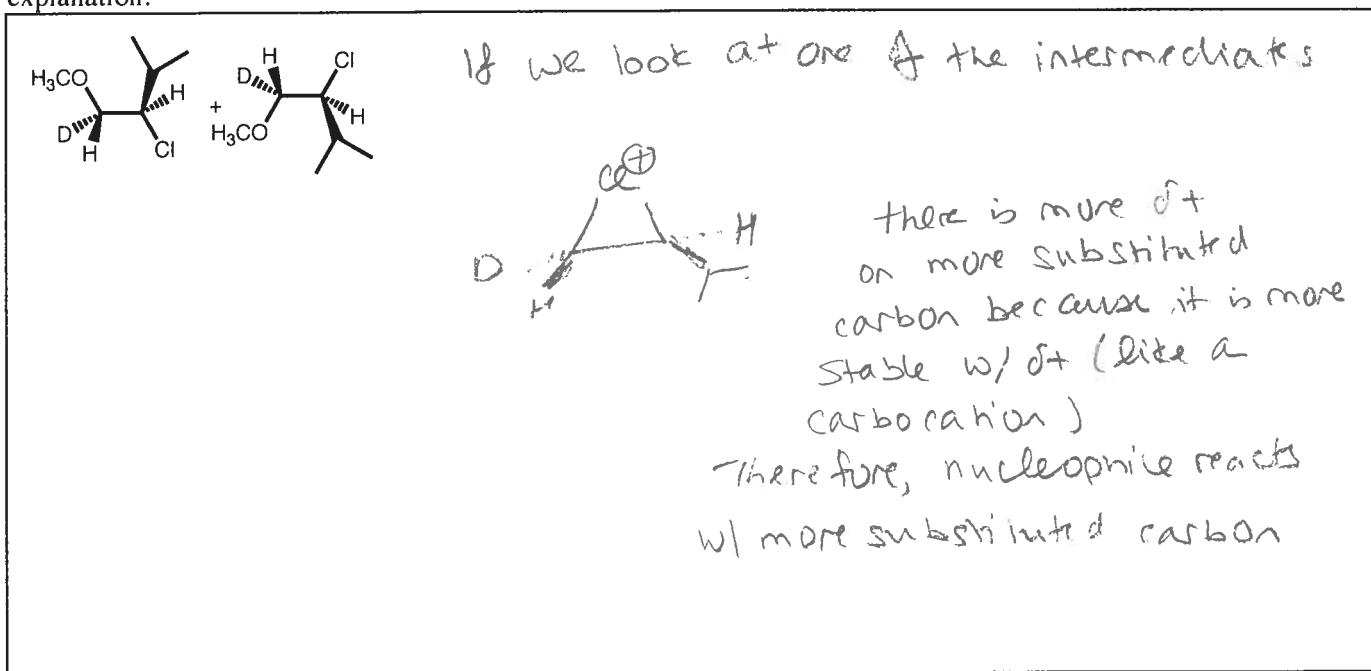 explanation.
H
Cl
H₃CO
H
D
+
D
H₃CO
H
H
Cl
If we look at one of the intermediates
Cl⊕
D
H
H
there is more δ+
on more substituted
carbon because it is more
stable w/ δ+ (like a
carbocation)
Therefore, nucleophile reacts
w/ more substituted carbon